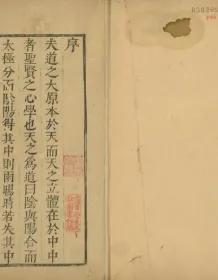 序
夫道之大原本於天而天之立體在於中中
者聖賢之心學也天之為道曰陰與陽合而
太極分而陰陽得其中則雨暘時若失其中